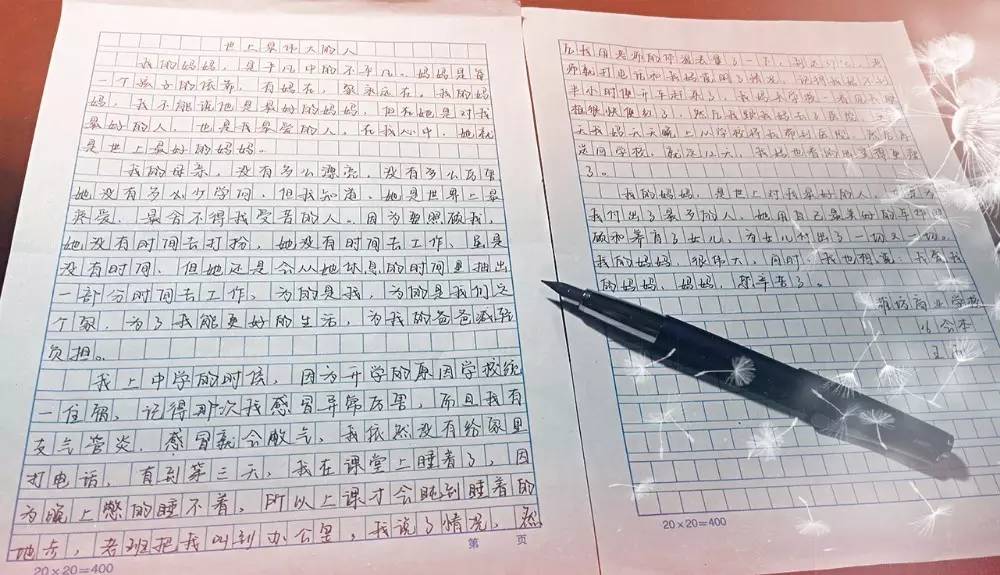 世上最伟大的人
我的妈妈，是平凡中的不平凡。妈妈是每
一个孩子的依靠，有妈在，家永远在。我的妈
妈，我不能说她是最好的妈妈，但在她是对我
最好的人，也是我最爱的人，在我心中，她就
是世上最好的妈妈。
我的母亲，没有多么漂亮，没有多么厉害
她没有多么少学问，但我知道，她是世界上最
疼爱、最舍不得我受苦的人。因为要照顾我，
她没有时间去打扮，她没有时间去工作、虽是
没有时间，但她还是会从她休息的时间里抽出
一部分时间去工作。为的是我，为的是我们这
个家，为了我能更好的生活，为我的爸爸减轻
负担。
我上中学的时候，因为开学的原因学校统
一住宿，记得那次我感冒异常厉害，而且我有
支气管炎，感冒就会散气，我依然没有给家里
打电话，直到第三天，我在课堂上睡着了，因
为晚上憋的睡不着，所以上课才会眠到睡着的
地步，老班把我叫到办公室，我说了情况，然
第 页
20×20=400
后我用老师的体温表量了一下，
师就打电话和我妈说明了情况，记得我妈不到
半小时便开车赶来了，我妈来学校一看见我眼
眶很快便红了，然后我跟我妈去了医院，
天我妈天天晚上从学校将我带到医院，然后再
送回学校，就这12天，我妈也看的出
了。
我的妈妈，是世上对我最好的人，
我付出了最多的人，她用自己最美好的年华照
顾和养育了女儿，为女儿付出了一切又一切。
我的妈妈，很伟大，同时，我也想说，我爱我
的妈妈，妈妈，您辛苦了。
潍坊商业学校
王
20×20=400